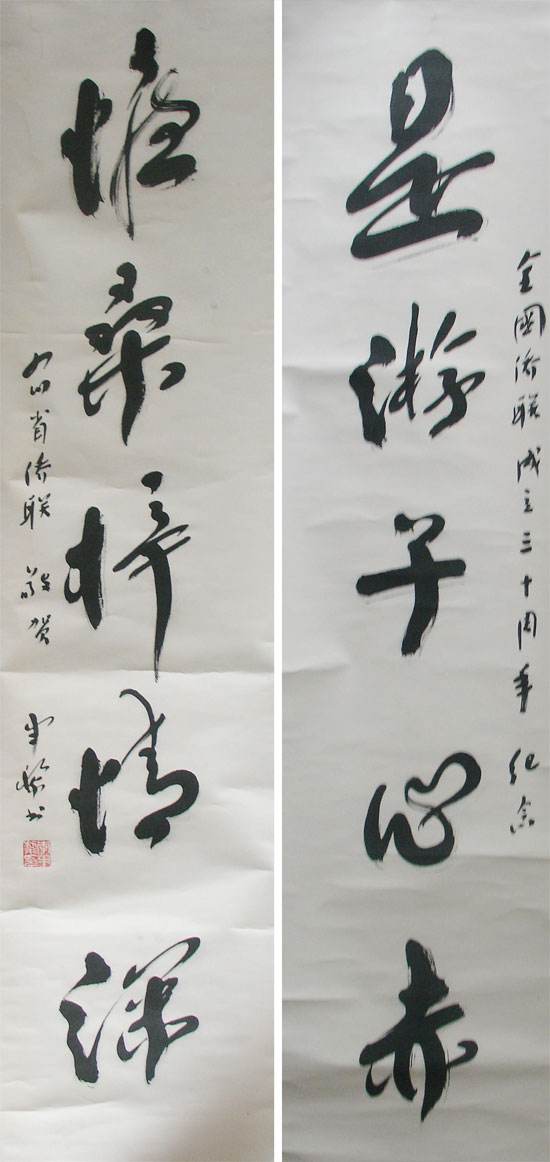 全國侨联成立三十周年 纪念
是游子心赤
惟桑梓情深
省侨联 敬贺